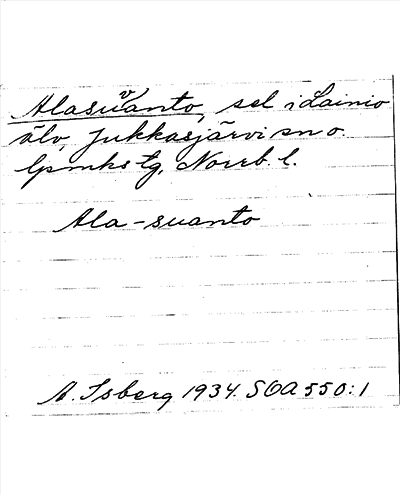 Alasuvanto, sel i Lainio
älv, Jukkasjärvi sn o.
lpmks tg, Norrb. l.
Ala-suanto
A. Isberg 1934. SOA 550:1